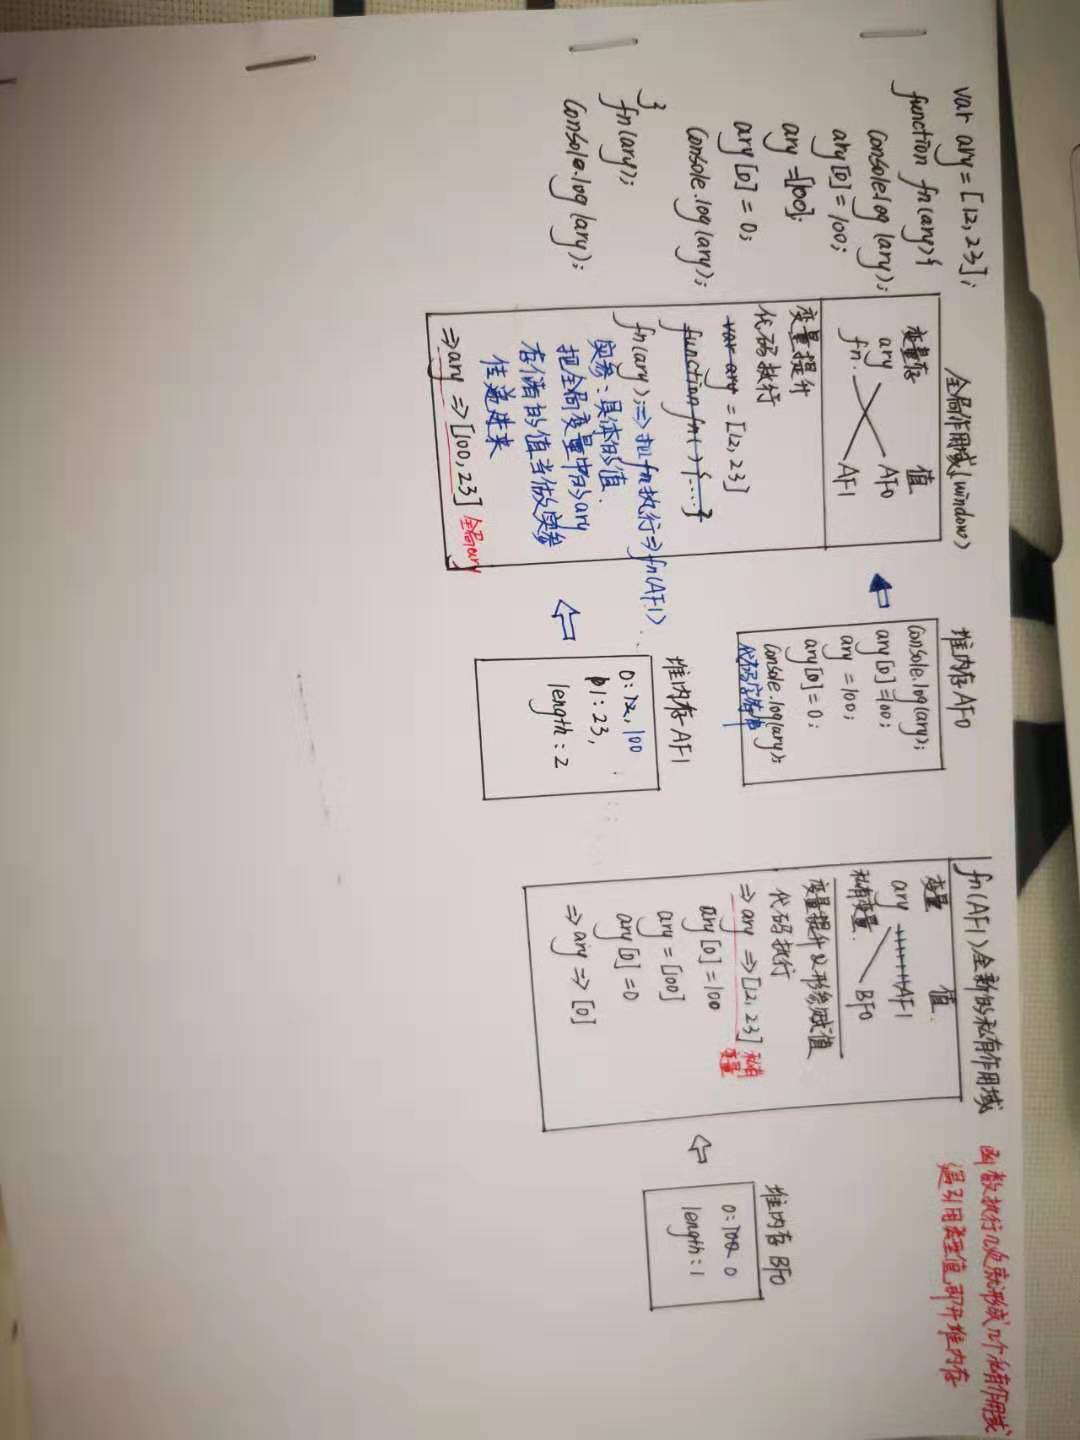 var ary=[12,23];
function fn(ary){
console.log(ary);
ary[0]=100;
ary=[100];
ary[0]=0;
console.log(ary);
}
fn(ary);
console.log(ary);
全局作用域(window)
变量存 值
ary AF0
fn. AF1
变量提升
代码执行
var ary = [12,23]
function fn(){....}
fn(ary);=>把fn执行=>fn(AF1)
实参:具体的值.
把全局变量中的ary
存储的值当做实参
传递进来
=>ary=>[100,23] 全局ary
堆内存AF0
console.log(ary);
ary[0]=100;
ary=100;
ary[0]=0;
console.log(ary);
代码字符串
堆内存AF1
0:12,100
1:23,
length:2
fn(AF1)全新的私有作用域
变量 值.
ary AF1
私有变量. BF0
变量提升及形参赋值
代码执行
=>ary=>[12,23] 私有变量
ary[0]=100
ary=[100]
ary[0]=0
=>ary=>[0]
堆内存BF0
0:100 0
length:1
函数执行几次就形成几个私有作用域
遇引用类型值,即开堆内存